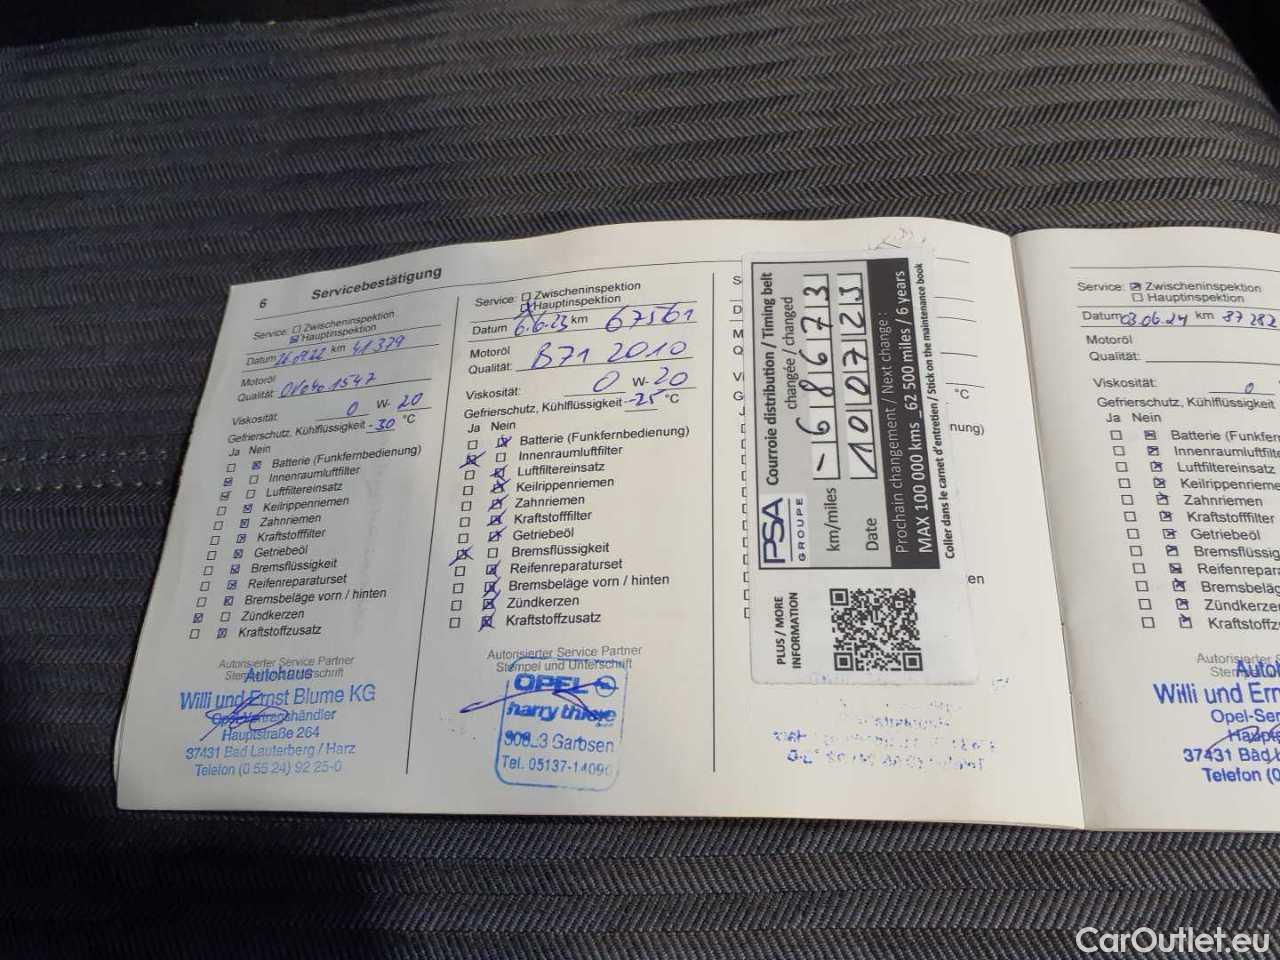 6 Servicebestätigung
Service: Zwischeninspektion
Hauptinspektion
Datum km 41.379
Motoröl
Qualität:
Viskosität: 0 W- 20
Gefrierschutz, Kühlflüssigkeit -30 °C
Ja Nein
Batterie (Funkfernbedienung)
Innenraumluftfilter
Luftfiltereinsatz
Keilrippenriemen
Zahnriemen
Kraftstofffilter
Getriebeöl
Bremsflüssigkeit
Reifenreparaturset
Bremsbeläge vorn / hinten
Zündkerzen
Kraftstoffzusatz
Autorisierter Service Partner
Autohaus
Willi und Ernst Blume KG
Opel-Vertragshändler
Hauptstraße 264
37431 Bad Lauterberg / Harz
Telefon (0 55 24) 92 25-0
Service: Zwischeninspektion
Hauptinspektion
Datum 6.6.23 km 67561
Motoröl
Qualität: B71 2010
Viskosität: 0 W- 20
Gefrierschutz, Kühlflüssigkeit -25 °C
Ja Nein
Batterie (Funkfernbedienung)
Innenraumluftfilter
Luftfiltereinsatz
Keilrippenriemen
Zahnriemen
Kraftstofffilter
Getriebeöl
Bremsflüssigkeit
Reifenreparaturset
Bremsbeläge vorn / hinten
Zündkerzen
Kraftstoffzusatz
Autorisierter Service Partner
Stempel und Unterschrift
OPEL
harry thiele
Garbsen
Tel. 05137-14090
PSA
GROUPE
Courroie distribution / Timing belt
changée / changed
km/miles - 68673
Date 100723
Prochain changement / Next change :
MAX 100 000 kms _62 500 miles / 6 years
Coller dans le carnet d'entretien / Stick on the maintenance book
PLUS / MORE
INFORMATION
°C
Service: Zwischeninspektion
Hauptinspektion
Datum 03.06.24 km 87282
Motoröl
Qualität:
Viskosität: 0
Gefrierschutz, Kühlflüssigkeit
Ja Nein
Batterie (Funkfern
Innenraumluftfilte
Luftfiltereinsatz
Keilrippenriemen
Zahnriemen
Kraftstofffilter
Getriebeöl
Bremsflüssig
Reifenrepara
Bremsbeläg
Zündkerzen
Kraftstoffz
Willi und Er
Opel-Ser
37431 Bad L
Telefon (0
CarOutlet.eu